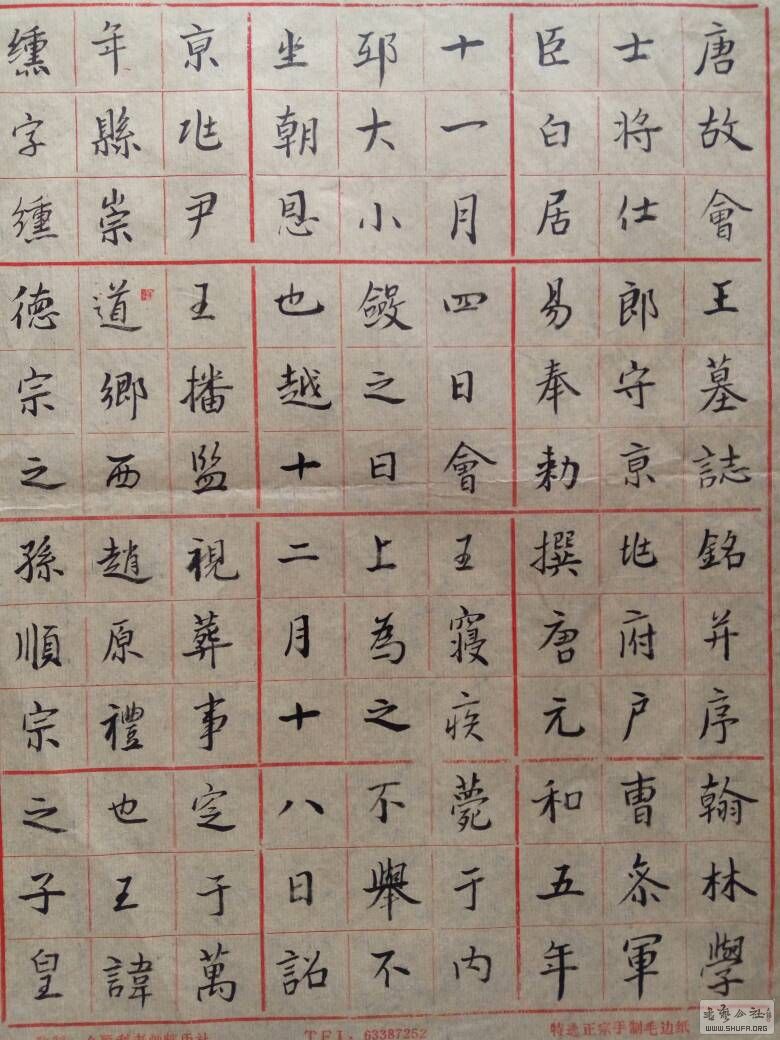 唐故會王墓誌銘并序翰林學
士將仕郎守京兆府户曹叅軍
臣白居易奉勅撰唐元和五年
十一月四日會王寢疾薨于内
邸大小斂之日上為之不舉不
坐朝恩也越十二月十八日詔
京兆尹王播監視葬事窆于萬
年縣崇道鄉西趙原禮也王諱
纁字纁德宗之孫順宗之子皇
TEL: 63387252
特选正宗手制毛边纸
WWW.SHUFA.ORG